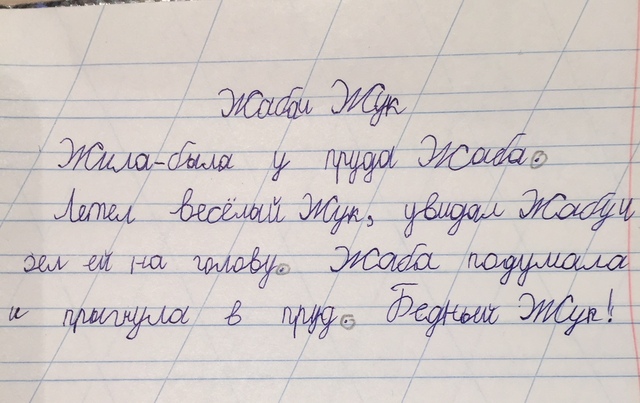 Жаба и Жук
Жила-была у пруда Жаба.
Летел весёлый Жук, увидал Жабу и
сел ей на голову. Жаба подумала
и прыгнула в пруд. Бедный Жук!